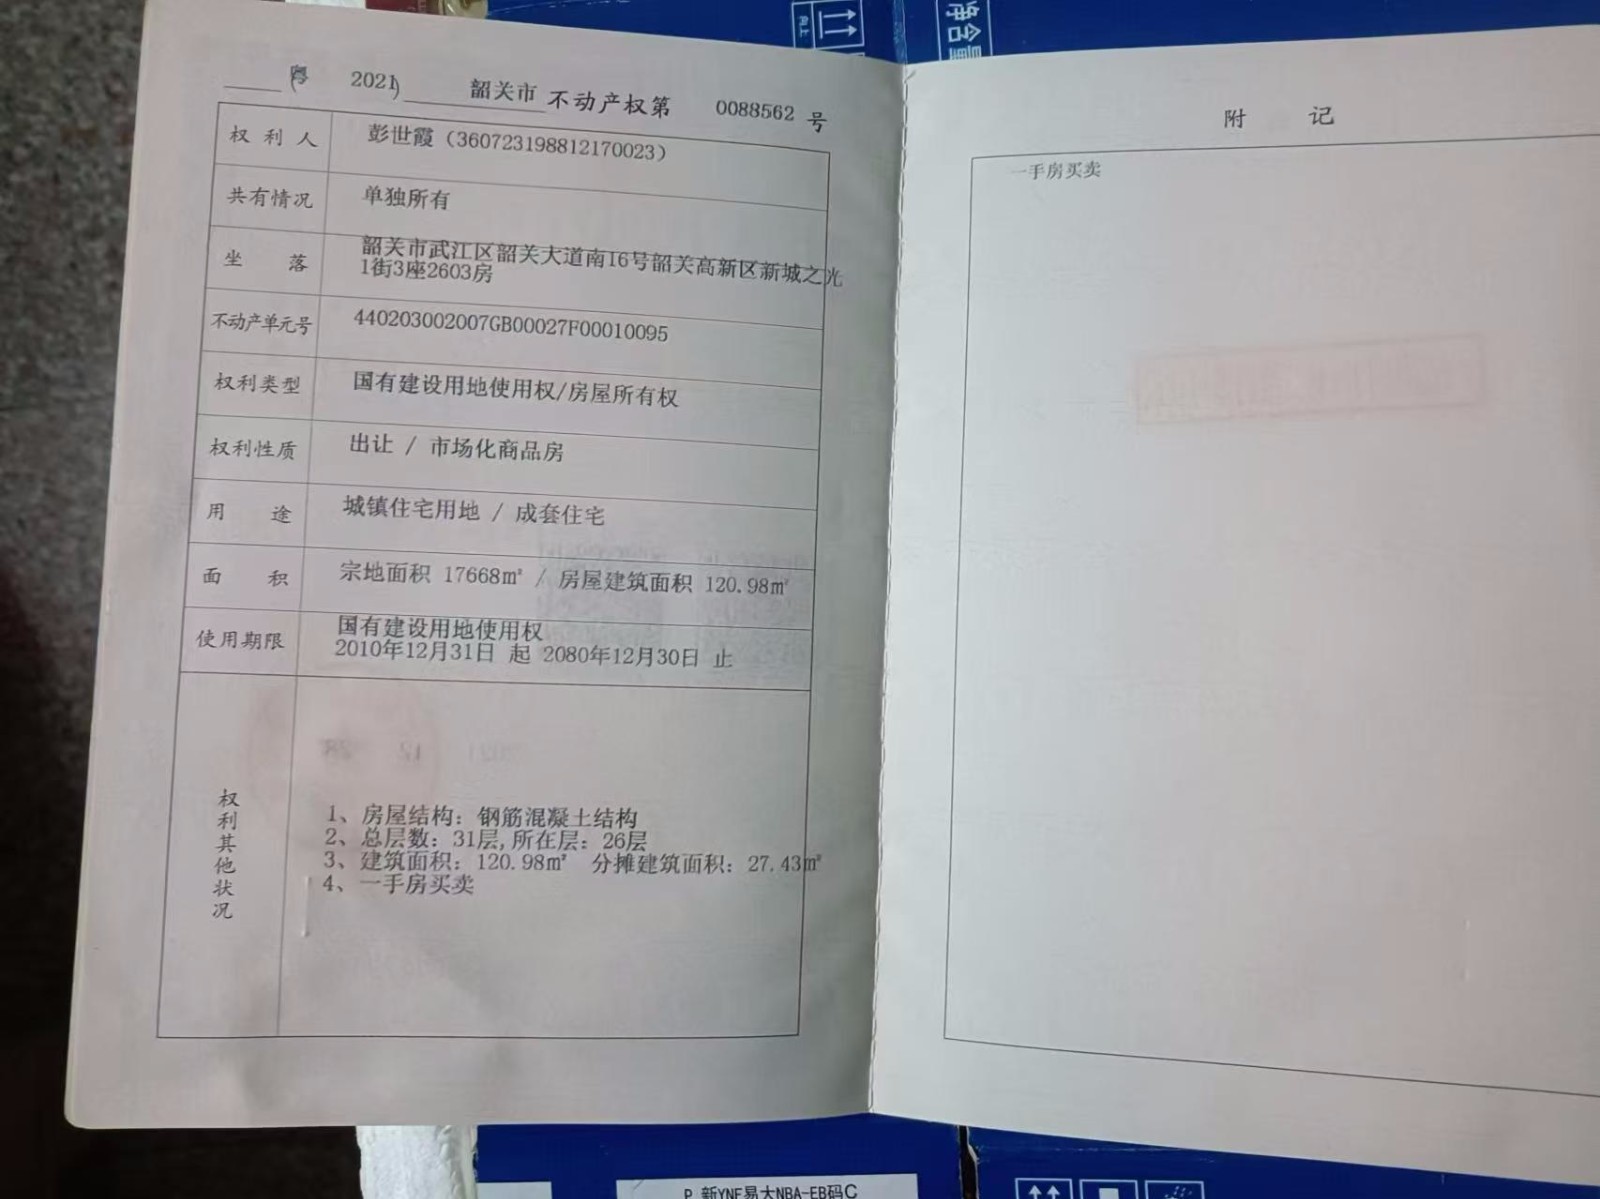 粤 ( 2021 ) 韶关市 不动产权第 0088562 号
权利人 彭世霞（360723198812170023）
共有情况 单独所有
坐落 韶关市武江区韶关大道南16号韶关高新区新城之光
1街3座2603房
不动产单元号 440203002007GB00027F00010095
权利类型 国有建设用地使用权/房屋所有权
权利性质 出让 / 市场化商品房
用途 城镇住宅用地 / 成套住宅
面积 宗地面积 17668㎡ / 房屋建筑面积 120.98㎡
使用期限 国有建设用地使用权
2010年12月31日 起 2080年12月30日 止
权利其他状况
1、房屋结构：钢筋混凝土结构
2、总层数：31层,所在层：26层
3、建筑面积：120.98㎡ 分摊建筑面积：27.43㎡
4、一手房买卖
附记
一手房买卖
向上
净含量